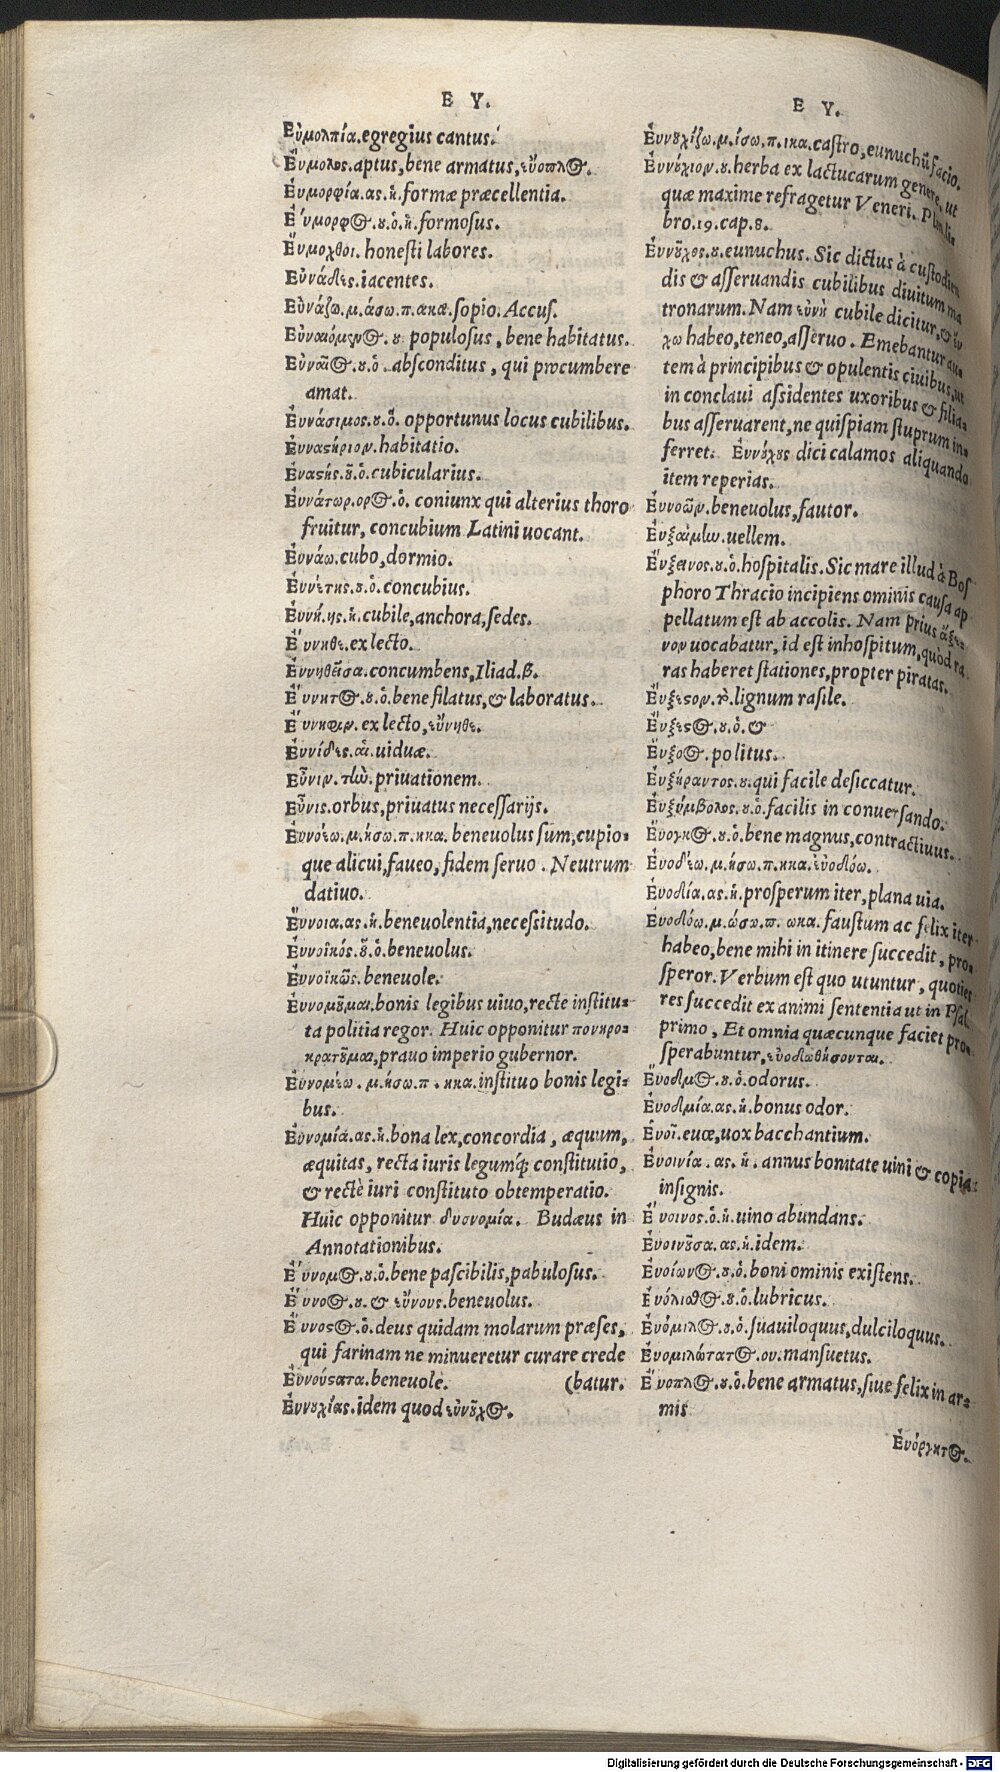 E Y.
Εὐμολπία.egregius cantus.
Εὔμολος.aptus,bene armatus,εὔοπλος.
Εὐμορφία.ας.ἡ.formæ præcellentia.
Εὔμορφος.ου.ὁ.ἡ.formosus.
Εὔμοχθοι.honesti labores.
Εὐνάδες.iacentes.
Εὐνάζω.μ.άσω.π.ακα.sopio.Accus.
Εὐναιόμενος.ου populosus, bene habitatus.
Εὐναῖος.ου.ὁ.absconditus, qui procumbere
amat.
Εὐνάσιμος.ου.ὁ. opportunus locus cubilibus.
Εὐναστήριον.habitatio.
Εὐναστής.οῦ.ὁ.cubicularius.
Εὐνάτωρ.ορος.ὁ. coniunx qui alterius thoro
fruitur, concubium Latini uocant.
Εὐνάω.cubo,dormio.
Εὐνέτης.ου.ὁ.concubius.
Εὐνή.ης.ἡ.cubile,anchora,sedes.
Εὔνηθε.ex lecto.
Εὐνηθεῖσα.concumbens,Iliad.β.
Εὔνητος.ου.ὁ.bene filatus,& laboratus.
Εὔνηφιν.ex lecto,εὔνηθε.
Εὐνίδες.αἱ.uiduæ.
Εὖνιν.τὴν.priuationem.
Εὖνις.orbus,priuatus necessarijs.
Εὐνοέω.μ.ήσω.π.ηκα. beneuolus sum,cupio=
que alicui,faueo, fidem seruo. Neutrum
datiuo.
Εὔνοια.ας.ἡ.beneuolentia,necessitudo.
Εὐνοϊκός.οῦ.ὁ.beneuolus.
Εὐνοϊκῶς.beneuole.
Εὐνομοῦμαι.bonis legibus uiuo,recte institu=
ta politia regor. Huic opponitur πονηρο=
κρατοῦμαι,prauo imperio gubernor.
Εὐνομέω. μ.ήσω.π.ηκα.instituo bonis legi=
bus.
Εὐνομία.ας.ἡ.bona lex,concordia, æquum,
æquitas, recta iuris legumq́; constitutio,
& rectè iuri constituto obtemperatio.
Huic opponitur δυσνομία. Budæus in
Annotationibus.
Εὔνομος.ου.ὁ.bene pascibilis,pabulosus.
Εὔνοος.ου. & εὔνους.beneuolus.
Εὔνοστος.ὁ.deus quidam molarum præses,
qui farinam ne minueretur curare crede
Εὐνούστατα.beneuole. (batur.
Εὐνουχίας.idem quod εὐνοῦχος.
E Y.
Εὐνουχίζω.μ.ίσω.π.ικα.castro,eunuchũ facio.
Εὐνούχιον.ου.herba ex lactucarum genere, ut
quæ maxime refragetur Veneri. Plin.li=
bro.19.cap.8.
Εὐνοῦχος.ου.eunuchus. Sic dictus à custodien
dis & asseruandis cubilibus diuitum ma
tronarum. Nam εὐνὴ cubile dicitur, & ἔ
χω habeo,teneo,asseruo. Emebantur au=
tem à principibus & opulentis ciuibus,ut
in conclaui assidentes uxoribus & filia=
bus asseruarent,ne quispiam stuprum in=
ferret. Εὐνούχους dici calamos aliquando
item reperias.
Εὐνοῶν.beneuolus,fautor.
Εὐξαίμην.uellem.
Εὔξεινος.ου.ὁ.hospitalis. Sic mare illud à Bos
phoro Thracio incipiens ominis causa ap
pellatum est ab accolis. Nam prius ἄξει=
νον uocabatur, id est inhospitum,quod ra
ras haberet stationes,propter piratas.
Εὔξεστον.τὸ.lignum rasile.
Εὔξεστος.ου.ὁ.&
Εὔξοος.politus.
Εὐξήραντος.ου.qui facile desiccatur.
Εὐξύμβολος.ου.ὁ.facilis in conuersando.
Εὔογκος.ου.ὁ.bene magnus,contractiuus.
Εὐοδέω.μ.ήσω.π.ηκα.εὐοδόω.
Εὐοδία.ας.ἡ.prosperum iter,plana uia.
Εὐοδόω.μ.ώσω.π. ωκα.faustum ac felix iter
habeo,bene mihi in itinere succedit, pro=
speror. Verbum est quo utuntur, quoties
res succedit ex animi sententia ut in Psal.
primo, Et omnia quæcunque faciet pro=
sperabuntur,εὐοδωθήσονται.
Εὔοδμος.ου.ὁ.odorus.
Εὐοδμία.ας.ἡ.bonus odor.
Εὐοῖ.euœ,uox bacchantium.
Εὐοινία.ας.ἡ.annus bonitate uini & copia
insignis.
Εὔοινος.ὁ.ἡ.uino abundans.
Εὐοινοῦσα.ας.ἡ.idem.
Εὐοίωνος.ου.ὁ.boni ominis existens.
Εὐόλισθος.ου.ὁ.lubricus.
Εὐόμιλος.ου.ὁ.suauiloquus,dulciloquus.
Εὐομιλώτατος.ου.mansuetus.
Εὔοπλος.ου.ὁ.bene armatus,siue felix in ar=
mis
Εὐόργητος.
Digitalisierung gefördert durch die Deutsche Forschungsgemeinschaft - DFG